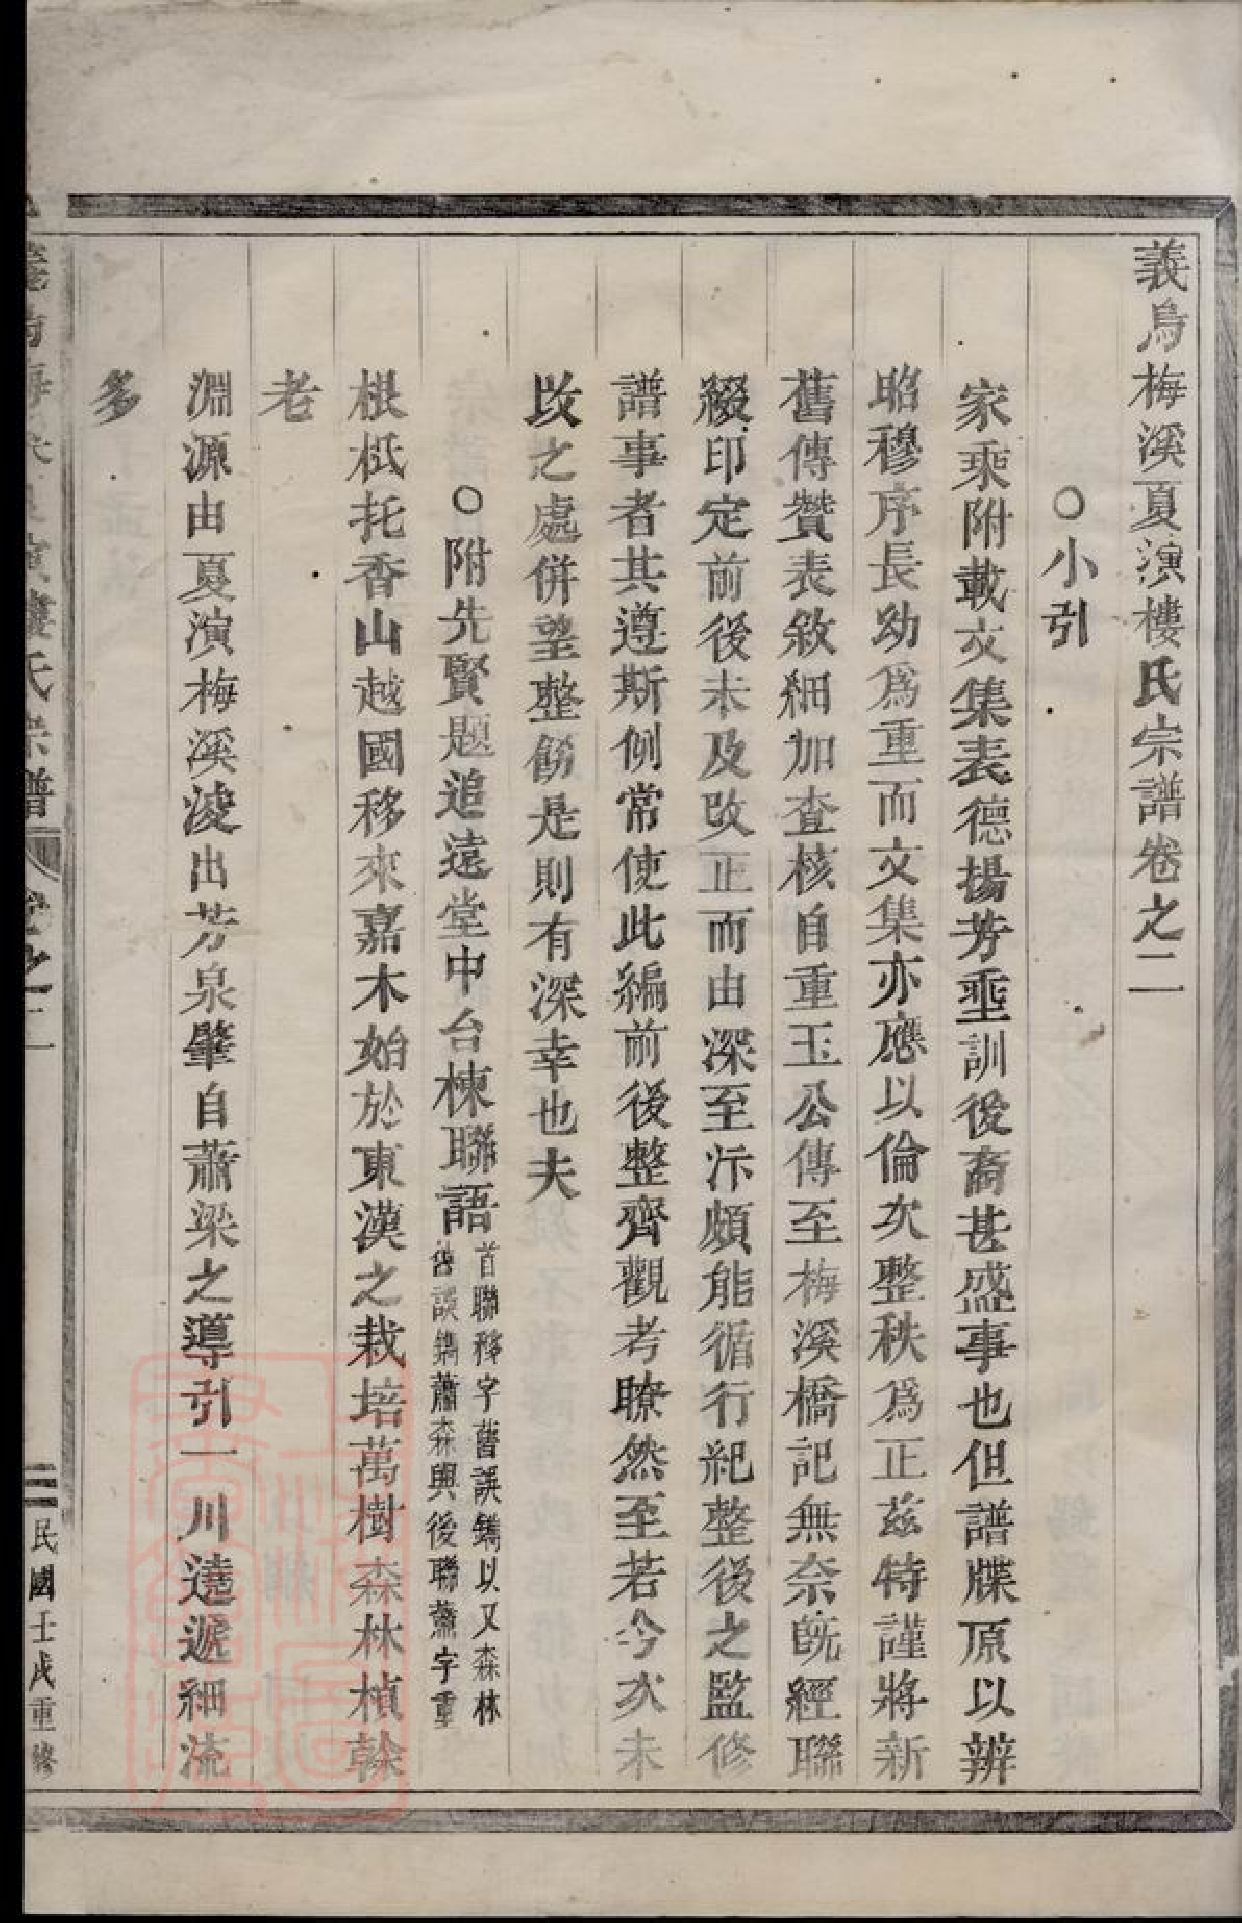 義烏梅溪夏演樓氏宗譜卷之二
○小引
家乘附載文集表德揚芳垂訓後裔甚盛事也但譜牒原以辨
昭穆序長幼爲重而文集亦應以倫次整秩爲正茲特謹將新
舊傳贊表敘細加查核自重玉公傳至梅溪橋記無奈旣經聯
綴印定前後未及改正而由深至汴頗能循行紀整後之監修
譜事者其遵斯例常使此編前後整齊觀考瞭然至若今次未
改之處併望整飭是則有深幸也夫
○附先賢題追遠堂中台棟聯語
首聯移字舊誤鐫以又森林
舊誤鐫蕭森與後聯蕭字重
根柢托香山越國移來嘉木始於東漢之栽培萬樹森林楨榦
老
淵源由夏演梅溪淩出芳泉肇自蕭梁之導引一川遶遞細流
多
卷之二
民國壬戌重修